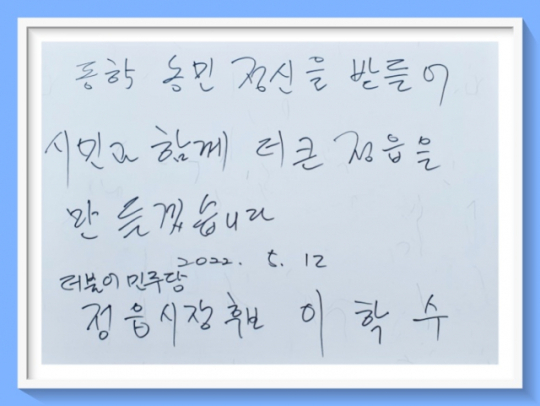 동학 농민 정신을 받들어
시민과 함께 더 큰 정읍을
만들겠습니다
2022. 5. 12
더불어민주당
정읍시장후보 이 학 수